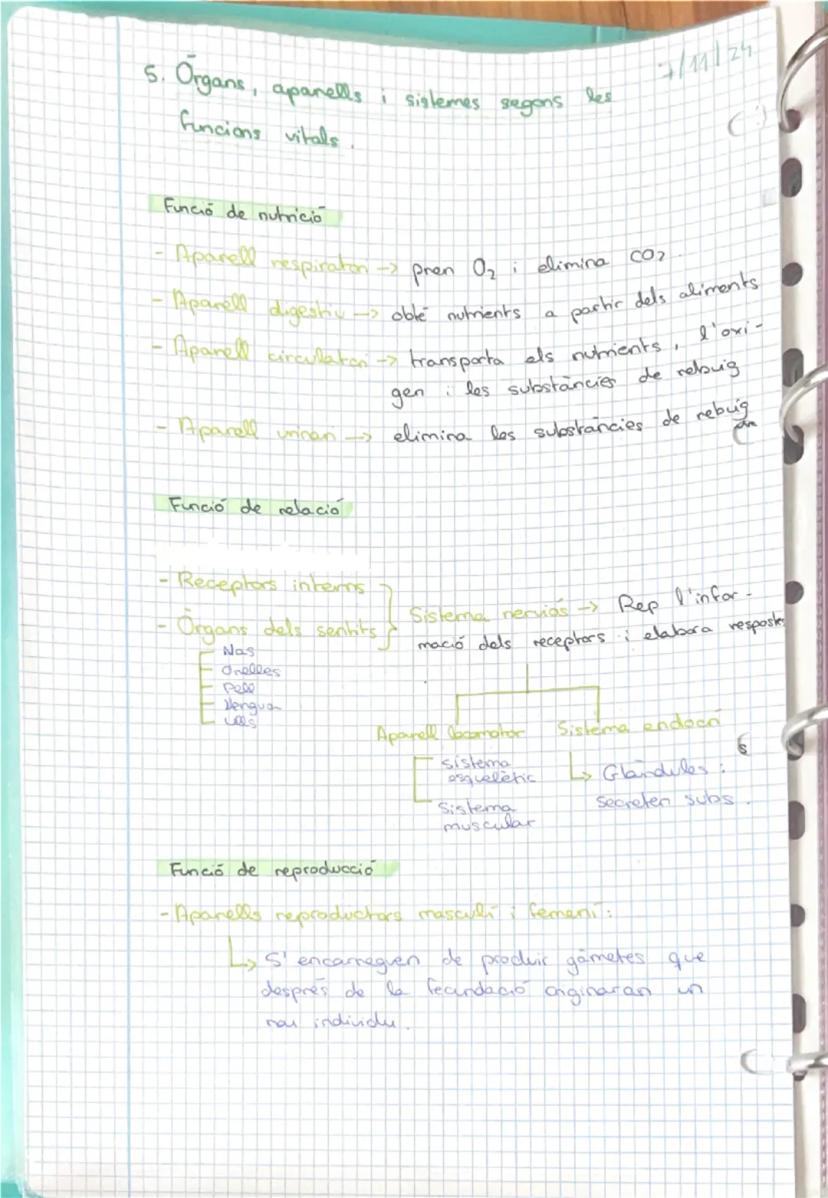 7/11/24
5. Òrgans, aparells i sistemes segons les
funcions vitals.
Funció de nutrició
- Aparell respiratori -> pren O2 i elimina CO2
- Aparell digestiu -> obté nutrients a partir dels aliments
- Aparell circulatori -> transporta els nutrients, l'oxi-
gen i les substàncies de rebuig
- Aparell urinari -> elimina les substàncies de rebuig
Funció de relació
- Receptors interns
- Òrgans dels sentits
Sistema nerviós -> Rep l'infor-
mació dels receptors i elabora respostes
Nas
Orelles
Pell
Llengua
Ulls
Aparell locomotor
Sistema endocrí
Sistema
esquelètic
Sistema
muscular
Glàndules:
Secreten subs.
Funció de reproducció
- Aparells reproductors masculí i femení:
S'encarreguen de produir gàmetes que
després de la fecundació originaran un
nou individu.